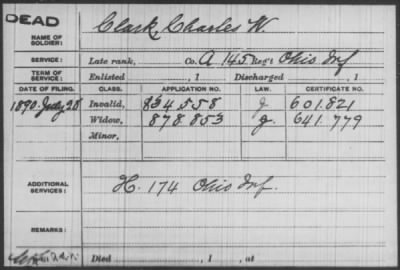 DEAD
NAME OF SOLDIER: Clark, Charles W.
SERVICE: Late rank, Co. A 145 Reg't Ohio Inf
TERM OF SERVICE: Enlisted , 1 Discharged , 1
DATE OF FILING. CLASS. APPLICATION NO. LAW. CERTIFICATE NO.
1890 July 28 Invalid, 834558 J 601.821
Widow, 878.853 J. 641.779
Minor,
ADDITIONAL SERVICES: H. 174 Ohio Inf.
REMARKS:
Died , 1 , at